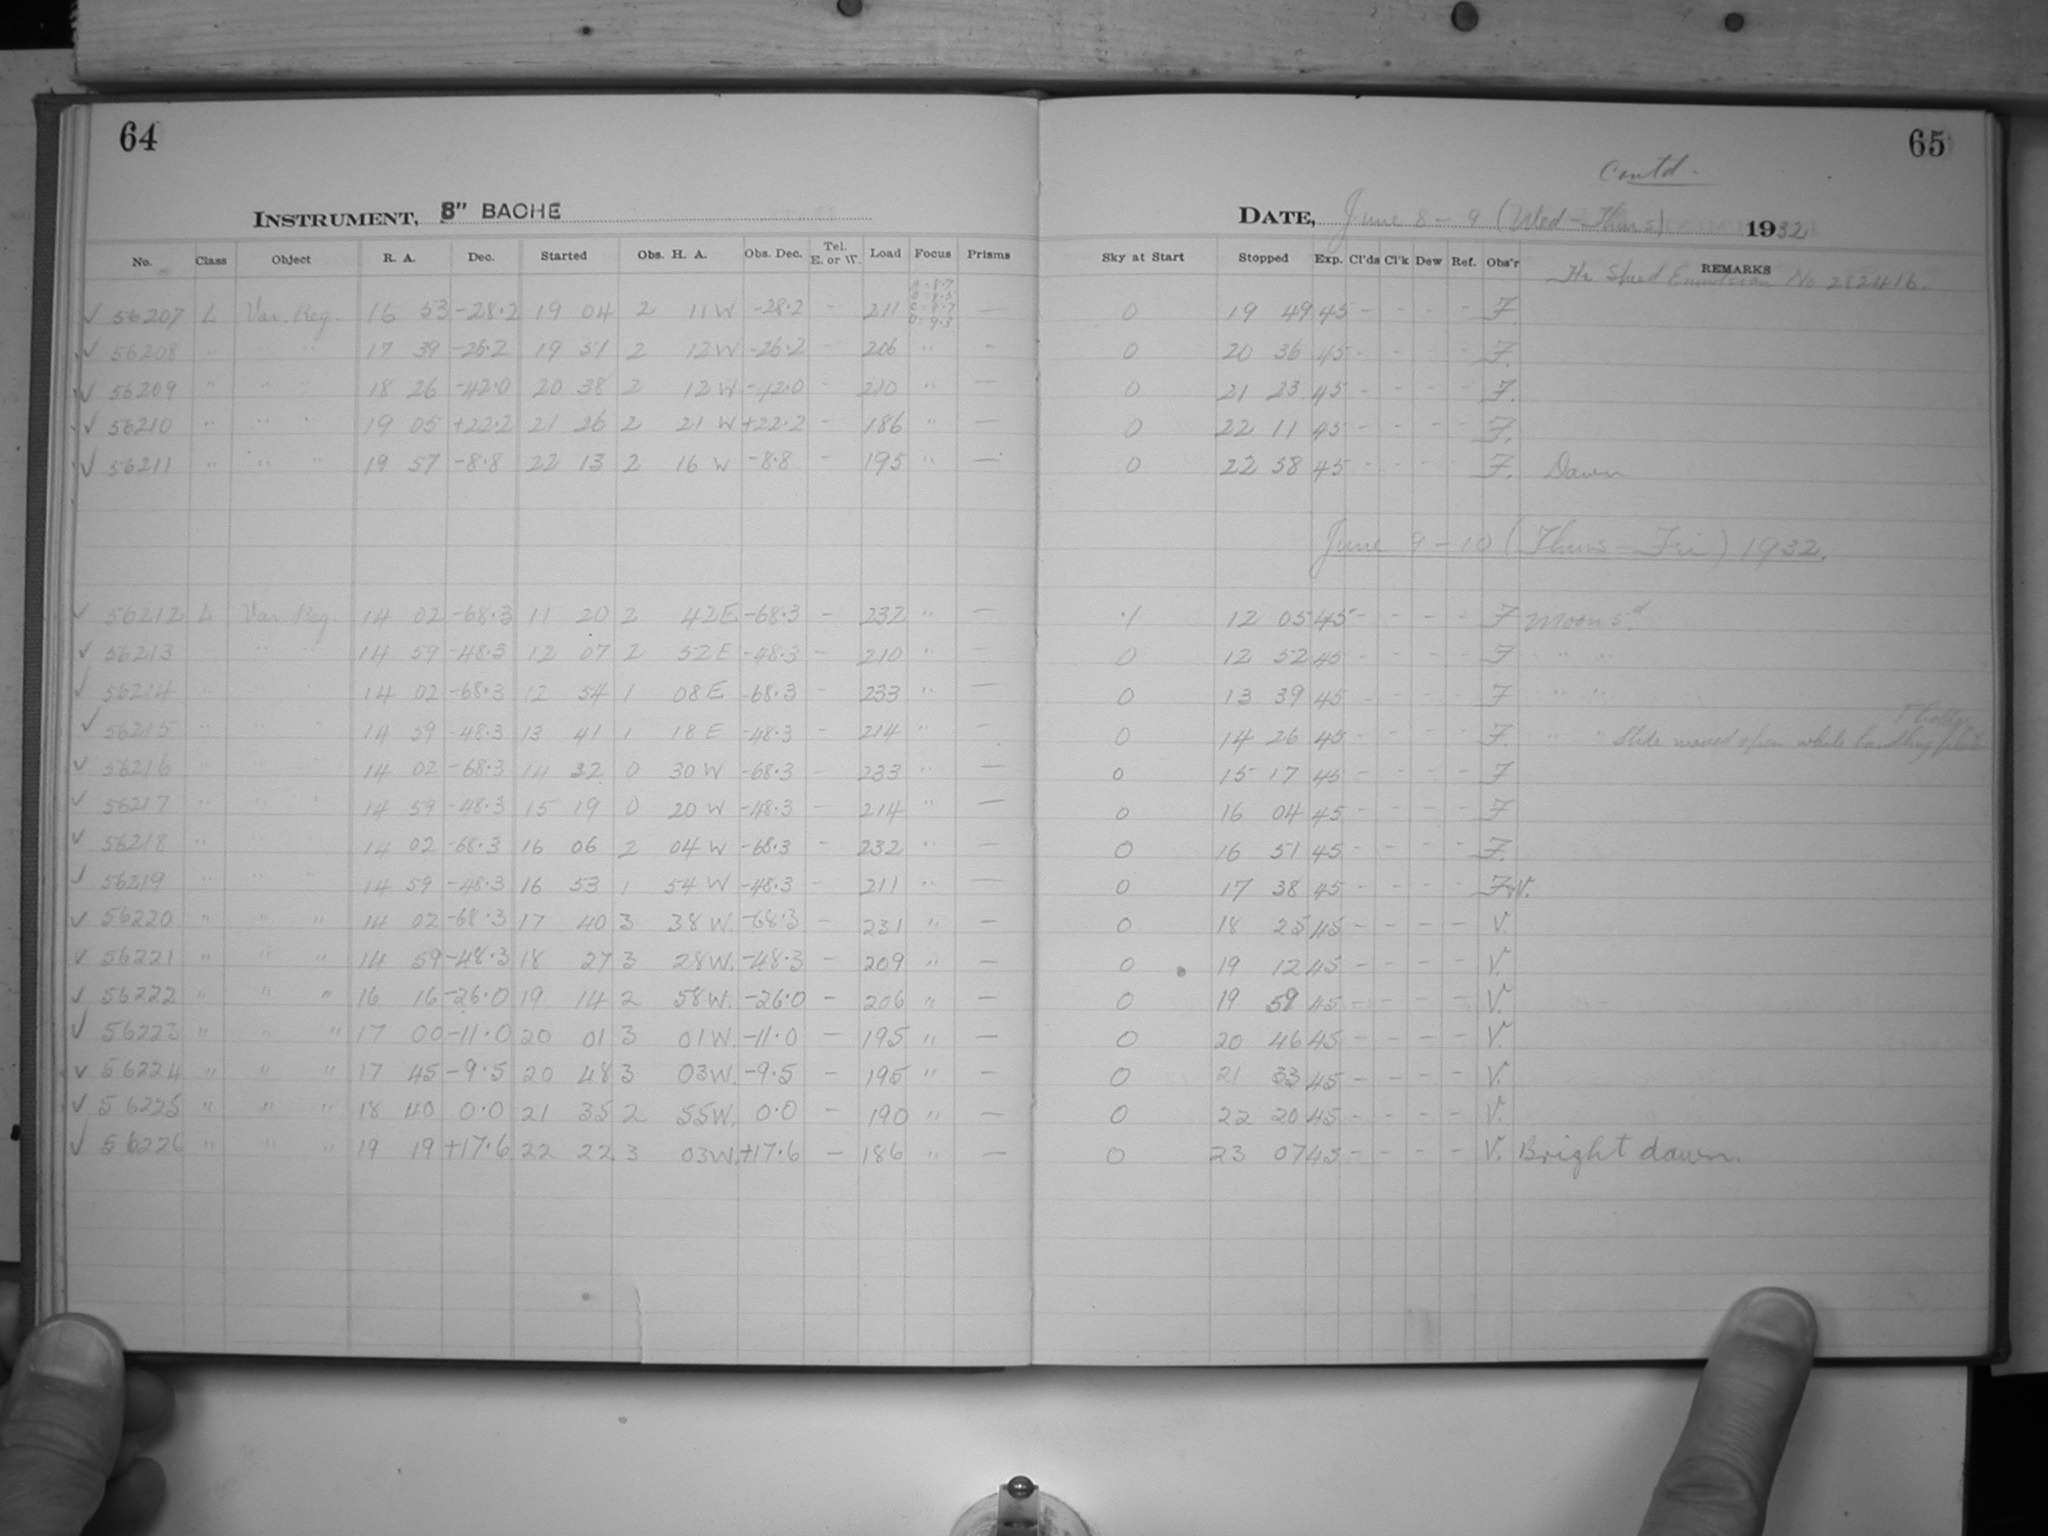 64
65
Contd.
INSTRUMENT, 8" BACHE
DATE, June 8-9 (Wed-Thurs) 1932
No. Class Object R. A. Dec. Started Obs. H. A. Obs. Dec. Tel. E. or W. Load Focus Prisms Sky at Start Stopped Exp. Cl'ds Cl'k Dew Ref. Obs'r REMARKS
Speed Emulsion No 282416.
✓ 56207 L Var. Reg. 16 53 -28.2 19 04 2 11 W -28.2 - 211 — 0 19 49 45 - - - - F.
✓ 56208 " " " 17 39 -26.2 19 51 2 12 W -26.2 - 206 " - 0 20 36 45 - - - - F.
✓ 56209 " " " 18 26 -42.0 20 38 2 12 W -42.0 - 210 " — 0 21 23 45 - - - - F.
✓ 56210 " " " 19 05 +22.2 21 26 2 21 W +22.2 - 186 " — 0 22 11 45 - - - - F.
✓ 56211 " " " 19 57 -8.8 22 13 2 16 W -8.8 - 195 " — 0 22 58 45 - - - - F. Dawn
June 9-10 (Thurs-Fri) 1932.
✓ 56212 L Var. Reg. 14 02 -68.3 11 20 2 42 E -68.3 - 232 " — 12 05 45 - - - - F Moon 5d
✓ 56213 " " " 14 59 -48.3 12 07 2 52 E -48.3 - 210 " — 0 12 52 45 - - - - F " "
✓ 56214 " " " 14 02 -68.3 12 54 1 08 E -68.3 - 233 " — 0 13 39 45 - - - - F " "
✓ 56215 " " " 14 59 -48.3 13 41 1 18 E -48.3 - 214 " - 0 14 26 45 - - - - F. " " Slide moved open while handling
✓ 56216 " " " 14 02 -68.3 14 32 0 30 W -68.3 - 233 " — 0 15 17 45 - - - - F
✓ 56217 " " " 14 59 -48.3 15 19 0 20 W -48.3 - 214 " — 0 16 04 45 - - - - F
✓ 56218 " " " 14 02 -68.3 16 06 2 04 W -68.3 - 232 " — 0 16 51 45 - - - - F.
✓ 56219 " " " 14 59 -48.3 16 53 1 54 W -48.3 - 211 " — 0 17 38 45 - - - - F+V.
✓ 56220 " " " 14 02 -68.3 17 40 3 38 W. -68.3 - 231 " — 0 18 25 45 - - - - V.
✓ 56221 " " " 14 59 -48.3 18 27 3 28 W. -48.3 - 209 " — 0 19 12 45 - - - - V.
✓ 56222 " " " 16 16 -26.0 19 14 2 58 W. -26.0 - 206 " — 0 19 59 45 - - - - V.
✓ 56223 " " " 17 00 -11.0 20 01 3 01 W. -11.0 - 195 " — 0 20 46 45 - - - - V.
✓ 56224 " " " 17 45 -9.5 20 48 3 03 W. -9.5 - 195 " — 0 21 33 45 - - - - V.
✓ 56225 " " " 18 40 0.0 21 35 2 55 W. 0.0 - 190 " — 0 22 20 45 - - - - V.
✓ 56226 " " " 19 19 +17.6 22 22 3 03 W. +17.6 - 186 " — 0 23 07 45 - - - - V. Bright dawn.